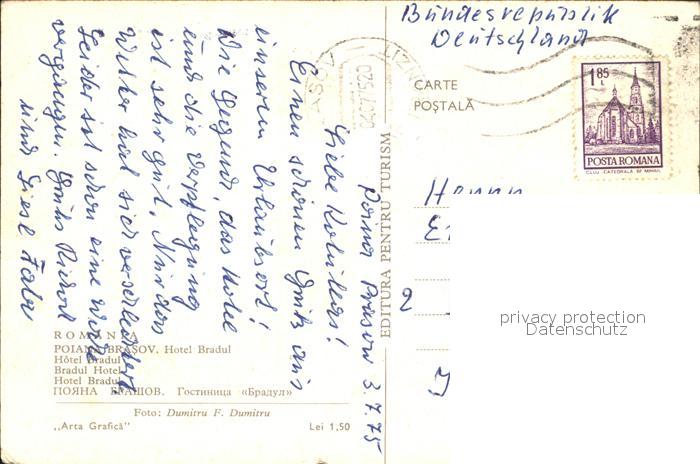 Bundesrepublik
Deutschland
CARTE
POȘTALĂ
1 85
L
POSTA ROMANA
CLUJ CATEDRALA SF MIHAIL
EDITURA PENTRU TURISM
Poiana Brasow 3.7.75
Liebe Kolulers!
Einen schönen Gruß aus
unserem Urlaubsort!
Die Gegend, das Hotel
und die Verpflegung
ist sehr gut. Nur das
Wetter hat sich verschlechtert
Leider ist schon eine Woche
vergangen. Gruß Richard
und Liesl Faber
Herrn
2
ROMANIA
POIANA BRAȘOV. Hotel Bradul
Hôtel Bradul
Bradul Hotel
Hotel Bradul
ПОЯНА БРАШОВ. Гостиница «Брадул»
Foto: Dumitru F. Dumitru
„Arta Grafică"
Lei 1,50
privacy protection
Datenschutz